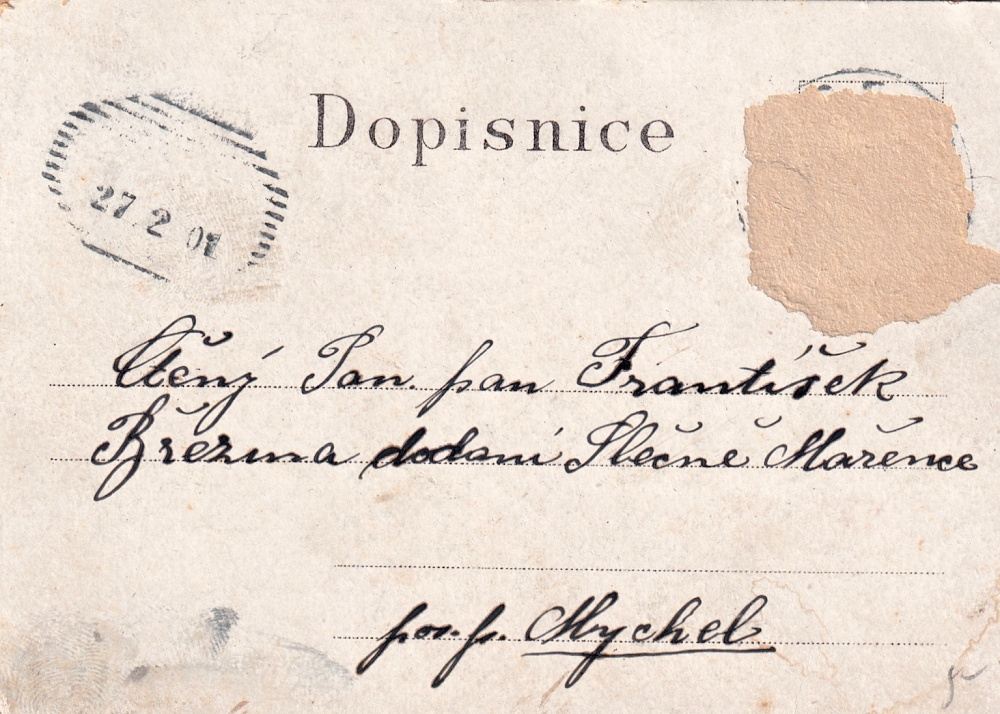 Dopisnice
27. 2 01
Ctěný Pan. pan František
Březina dodaní Slečně Mařence
pos. p. Mychel